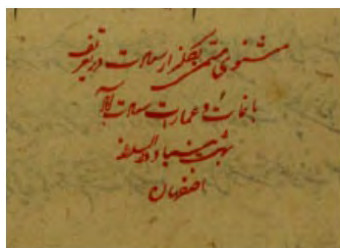 مثنوی مسمی بگلزار سعادت در تعریف
باغات و عمارات سعادت آباد
بهشت بنیاد دار السلطنه
اصفهان